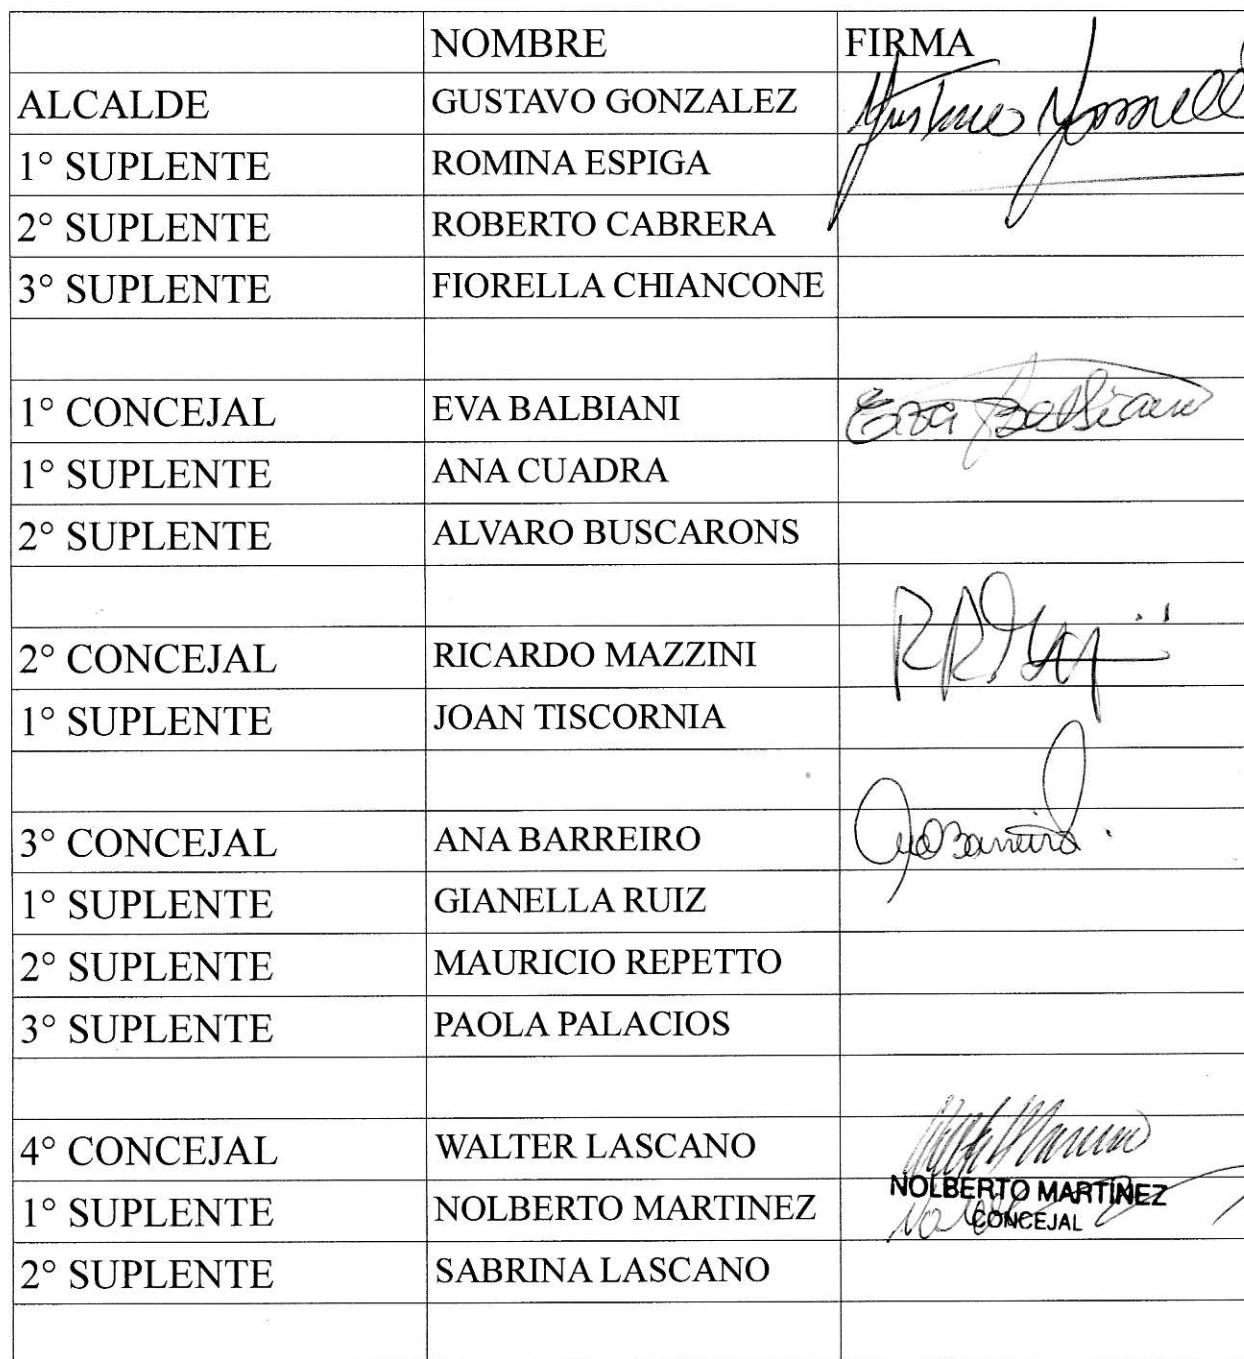 NOMBRE FIRMA
ALCALDE GUSTAVO GONZALEZ
1° SUPLENTE ROMINA ESPIGA
2° SUPLENTE ROBERTO CABRERA
3° SUPLENTE FIORELLA CHIANCONE
1° CONCEJAL EVA BALBIANI Eva Balbiani
1° SUPLENTE ANA CUADRA
2° SUPLENTE ALVARO BUSCARONS
2° CONCEJAL RICARDO MAZZINI
1° SUPLENTE JOAN TISCORNIA
3° CONCEJAL ANA BARREIRO Ana Barreiro
1° SUPLENTE GIANELLA RUIZ
2° SUPLENTE MAURICIO REPETTO
3° SUPLENTE PAOLA PALACIOS
4° CONCEJAL WALTER LASCANO
1° SUPLENTE NOLBERTO MARTINEZ NOLBERTO MARTINEZ
CONCEJAL
2° SUPLENTE SABRINA LASCANO